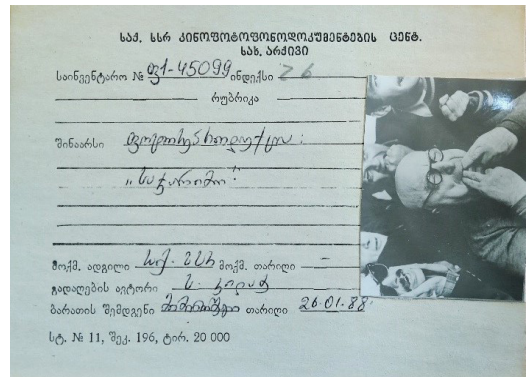 საქ. სსრ კინოფოტოფონოდოკუმენტების ცენტ.
სახ. არქივი
საინვენტარო № ფ1-45099 ინდექსი 26
რუბრიკა
შინაარსი ფოტორეპროდუქცია:
მოქმ. ადგილი საქ. სსრ მოქმ. თარიღი –
გადაღების ავტორი ს.
ბარათის შემდგენი თარიღი 26.01.88.
სტ. № 11, შეკ. 196, ტირ. 20 000